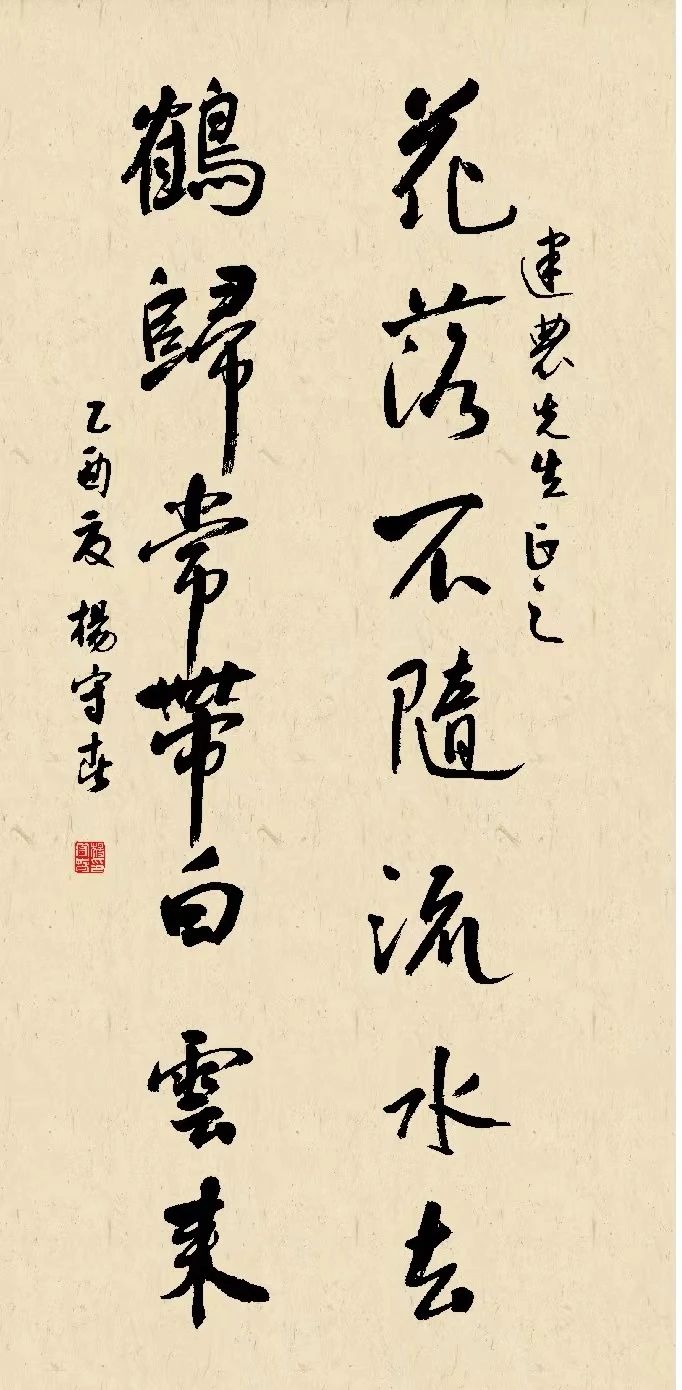 建農先生正之
花落不隨流水去
鶴歸常帶白雲来
乙酉夏 楊守春